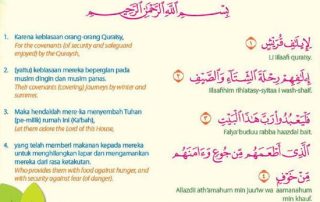 بِسْمِ اللَّهِ الرَّحْمَنِ الرَّحِيمِ
1. Karena kebiasaan orang-orang Quraisy,
For the covenants (of security and safeguard
enjoyed) by the Quraysh,
لِإِيلَافِ قُرَيْشٍ ١
Li iilaafi quraisy.
2. (yaitu) kebiasaan mereka bepergian pada
musim dingin dan musim panas.
Their covenants (covering) journeys by winter and
summer.
إِيلَافِهِمْ رِحْلَةَ الشِّتَاءِ وَالصَّيْفِ ٢
Iilaafihim rihlatasy-syitaa i wash-shaif.
3. Maka hendaklah mereka menyembah Tuhan
(pemilik) rumah ini (Ka'bah),
Let them adore the Lord of this House,
فَلْيَعْبُدُوا رَبَّ هَذَا الْبَيْتِ ٣
Falya'buduu rabba haazdal bait.
4. yang telah memberi makanan kepada mereka
untuk menghilangkan lapar dan mengamankan
mereka dari rasa ketakutan.
Who provides them with food against hunger, and
with security against fear (of danger).
الَّذِي أَطْعَمَهُمْ مِنْ جُوعٍ وَآمَنَهُمْ
مِنْ خَوْفٍ ٤
Allazdii ath'amahum min juu'iw wa aamanahum
min khauf.